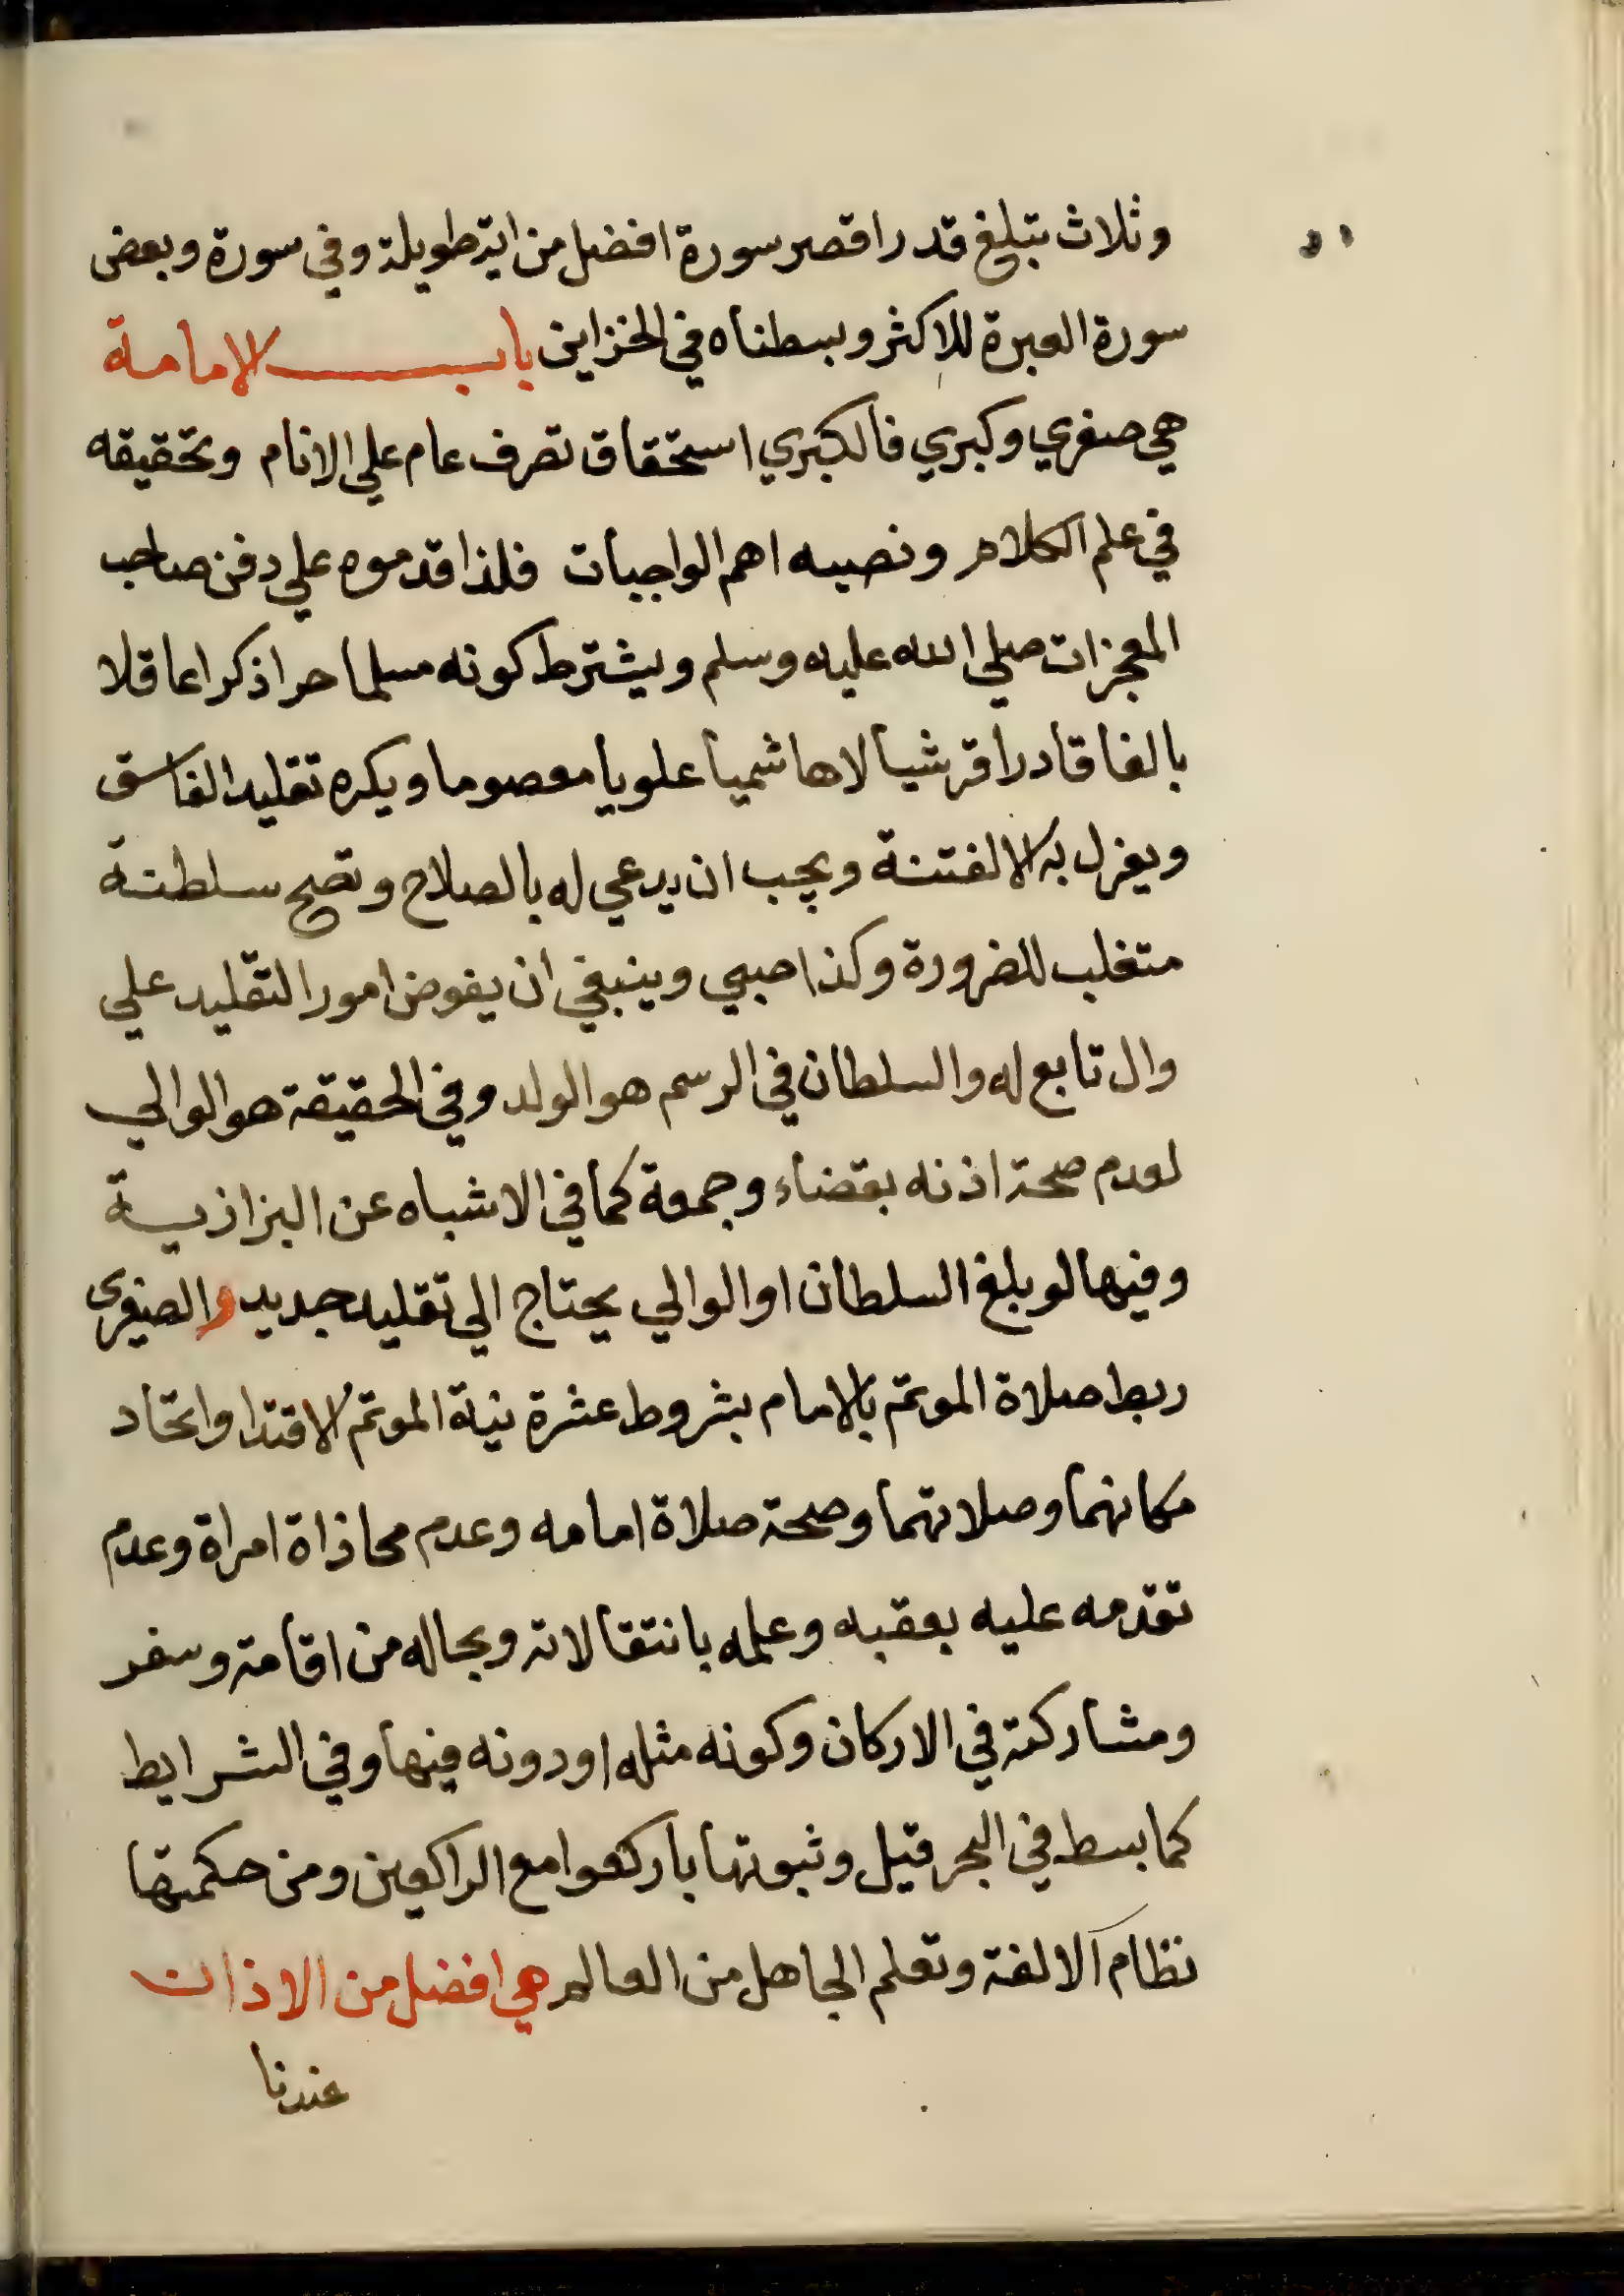 وثلاث تبلغ قدر اقصر سورة افضل من اية طويلة وفي سورة وبعض
سورة العبرة للاكثر وبسطناه في الخزاين باب الامامة
هي صغري وكبري فالكبري استحقاق تصرف عام علي الانام وتحقيقه
في علم الكلام ونصبه اهم الواجبات فلذا قدموه علي دفن صاحب
المعجزات صلي الله عليه وسلم ويشترط كونه مسلما حرا ذكرا عاقلا
بالغا قادرا قرشيا لا هاشميا علويا معصوما ويكره تقليد الفاسق
ويعزل به الا لفتنة ويجب ان يدعي له بالصلاح وتصح سلطنة
متغلب للضرورة وكذا صبي وينبغي ان يفوض امور التقليد علي
وال تابع له والسلطان في الرسم هو الولد وفي الحقيقة هو الوالي
لعدم صحة اذنه بقضاء وجمعة كما في الاشباه عن البزازية
وفيها لو بلغ السلطان او الوالي يحتاج الي تقليد جديد والصغرى
ربط صلاة الموتم بالامام بشروط عشرة نية الموتم الاقتدا واتحاد
مكانهما وصلاتهما وصحة صلاة امامه وعدم محاذاة امراة وعدم
تقدمه عليه بعقبه وعلمه بانتقالاته وبحاله من اقامة وسفر
ومشاركته في الاركان وكونه مثله او دونه فيها وفي الشرايط
كما بسط في البحر قيل وثبوتها باركعوا مع الراكعين ومن حكمتها
نظام الالفة وتعلم الجاهل من العالم هي افضل من الاذان
عندنا